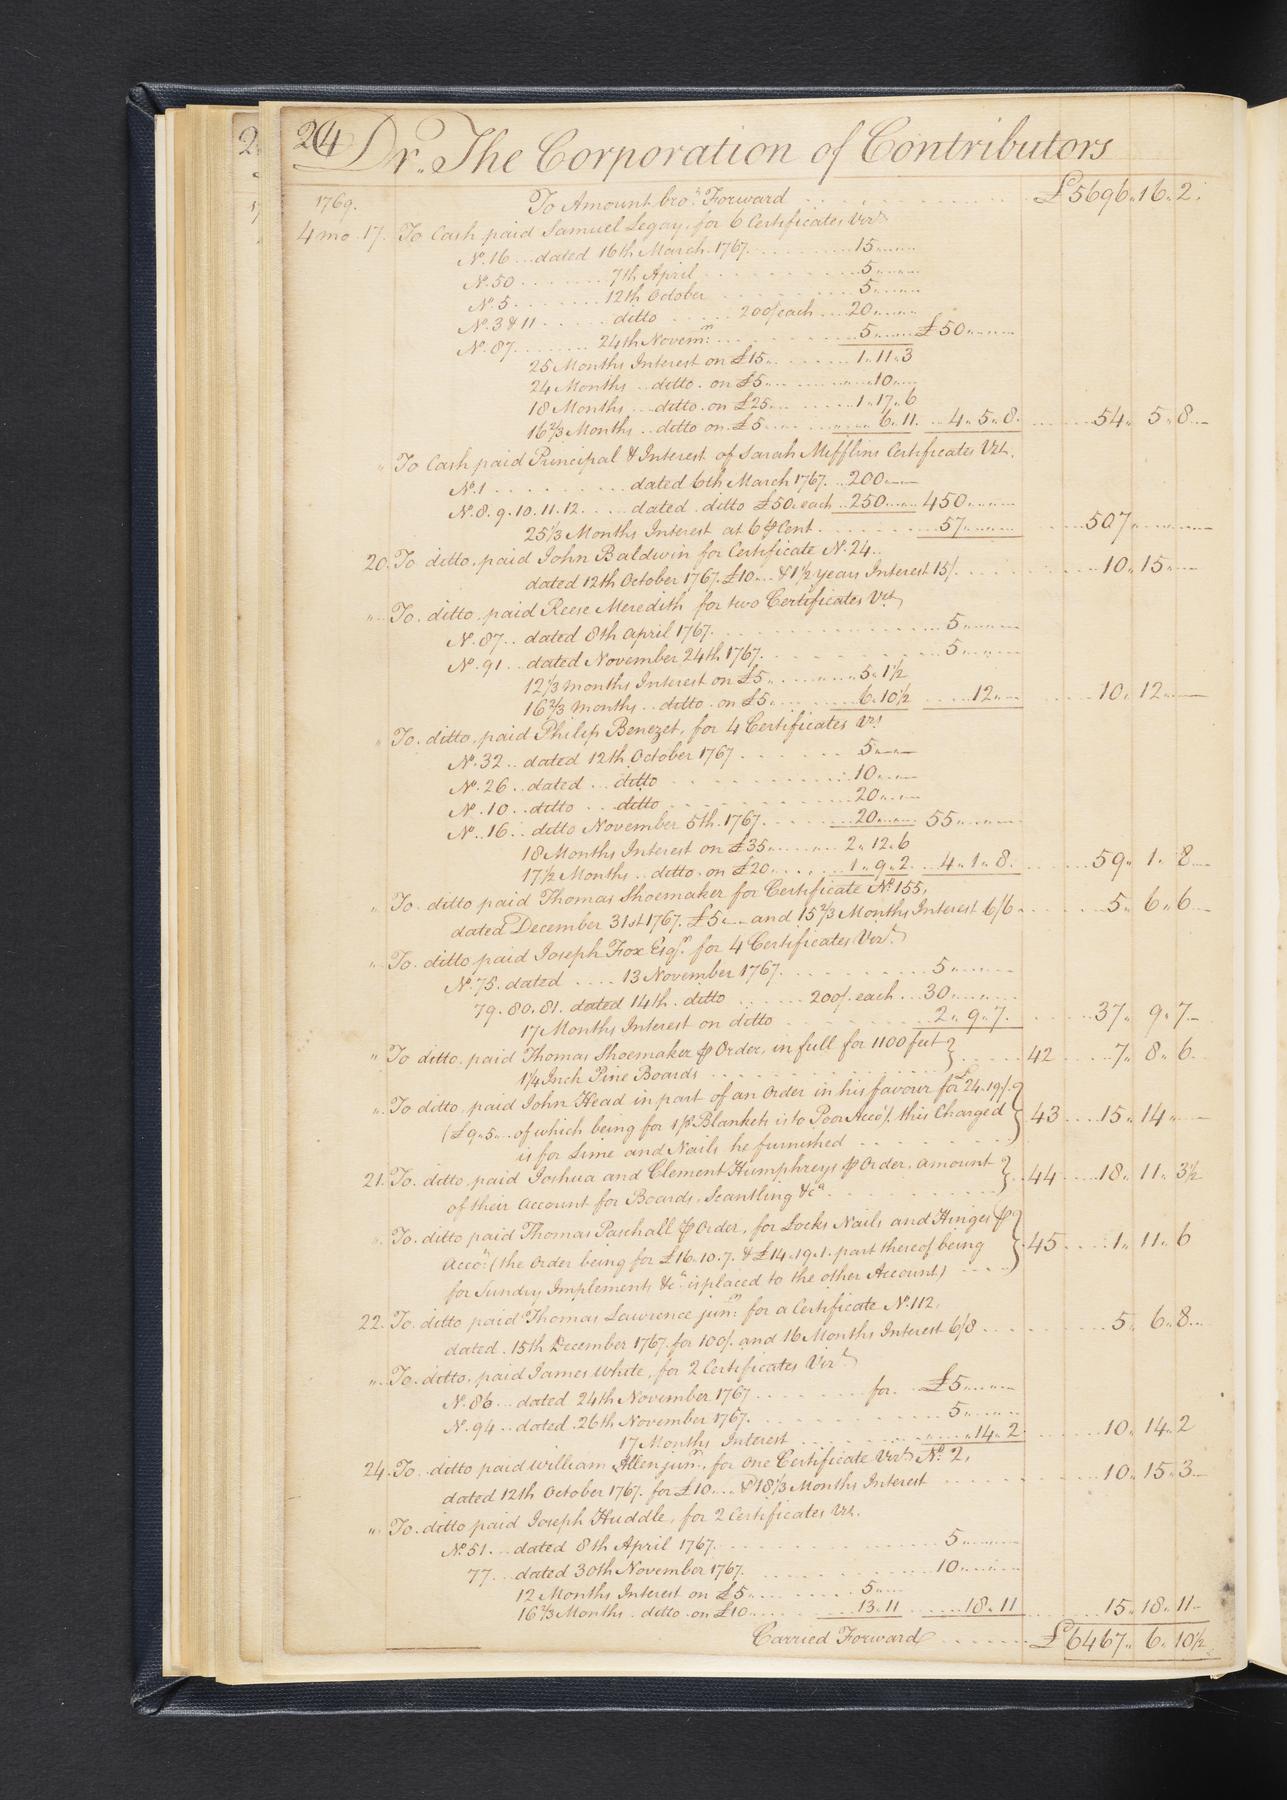 24 Dr. The Corporation of Contributors
1769. To Amount bro.t Forward £5696. 16. 2.
4 mo. 17. To Cash paid Samuel Legay, for 6 Certificates Vizt
No. 16 dated 16th March 1767. 15
No. 50 7th April 5
No. 5 12th October 5
No. 3 & 11 ditto 200/ each 20
No. 87 24th Novem.r 5 £50
25 Months Interest on £15 1. 11. 3
24 Months ditto on £5 10
18 Months ditto on £25 1. 17. 6
16 2/3 Months ditto on £5 6. 11. 4. 5. 8. 54. 5. 8
" To Cash paid Principal & Interest of Sarah Mifflins Certificates Vizt.
No. 1 dated 6th March 1767. 200
No. 8. 9. 10. 11. 12. dated ditto £50. each 250 450
25 1/3 Months Interest at 6 ⅌ Cent 57 507
20. To ditto paid John Baldwin for Certificate No. 24.
dated 12th October 1767. £10 & 1 1/2 years Interest 15/. 10. 15
" To ditto paid Reese Meredith for two Certificates Vizt
No. 87 dated 8th April 1767. 5
No. 91 dated November 24th 1767. 5
12 1/3 months Interest on £5 5. 1 1/2
16 2/3 months ditto on £5. 6. 10 1/2 12 10. 12
" To ditto paid Philip Benezet, for 4 Certificates Vizt
No. 32 dated 12th October 1767 5
No. 26 dated ditto 10
No. 10 ditto ditto 20
No. 16 ditto November 5th 1767. 20 55
18 Months Interest on £35 2. 12. 6
17 1/2 Months ditto on £20 1. 9. 2. 4. 1. 8. 59. 1. 8
" To ditto paid Thomas Shoemaker for Certificate No. 155.
dated December 31st 1767. £5 and 15 2/3 Months Interest 6/6 5. 6. 6
" To ditto paid Joseph Fox Esqr. for 4 Certificates Vizt.
No. 75. dated 13 November 1767. 5
79. 80. 81. dated 14th ditto 200/. each 30
17 Months Interest on ditto 2. 9. 7. 37. 9. 7
" To ditto paid Thomas Shoemaker ⅌ Order, in full for 1100 feet
1 1/4 Inch Pine Boards 42 7. 8. 6.
" To ditto paid John Head in part of an Order in his favour for £24. 19/.
(£9. 5 of which being for 1 ps Blankets is to Poor Accot. this Charged
is for Lime and Nails he furnished 43 15. 14
21. To ditto paid Joshua and Clement Humphreys ⅌ Order, amount
of their Account for Boards, Scantling &ca. 44 18. 11. 3 1/2
" To ditto paid Thomas Paschall ⅌ Order, for Locks Nails and Hinges ⅌
Acco.t (the Order being for £16. 10. 7. & £14. 19. 1. part thereof being
for Sundry Implements &ca. is placed to the other Account) 45 1. 11. 6
22. To ditto paid Thomas Lawrence jun.r for a Certificate No. 112.
dated 15th December 1767. for 100/. and 16 Months Interest 6/8 5. 6. 8
" To ditto paid James White, for 2 Certificates Vizt
No. 86 dated 24th November 1767 for £5
No. 94 dated 26th November 1767. 5
17 Months Interest 14. 2 10. 14. 2
24. To ditto paid William Allen jun.r, for one Certificate Vizt No. 2.
dated 12th October 1767. for £10 & 18 1/3 Months Interest 10. 15. 3
" To ditto paid Joseph Huddle, for 2 Certificates Vizt.
No. 51. dated 8th April 1767. 5
77 dated 30th November 1767. 10
12 Months Interest on £5 5
16 2/3 Months ditto on £10 13. 11 18. 11 15. 18. 11
Carried Forward £6467. 6. 10 1/2